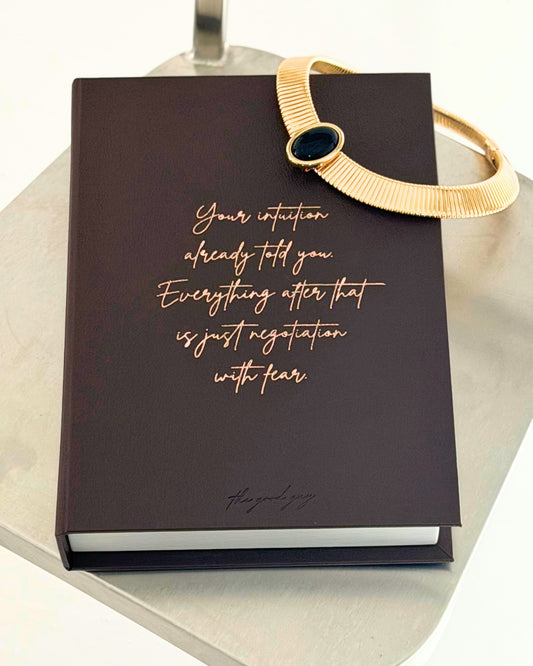 Your intuition
already told you.
Everything after that
is just negotiation
with fear.
the goods guy